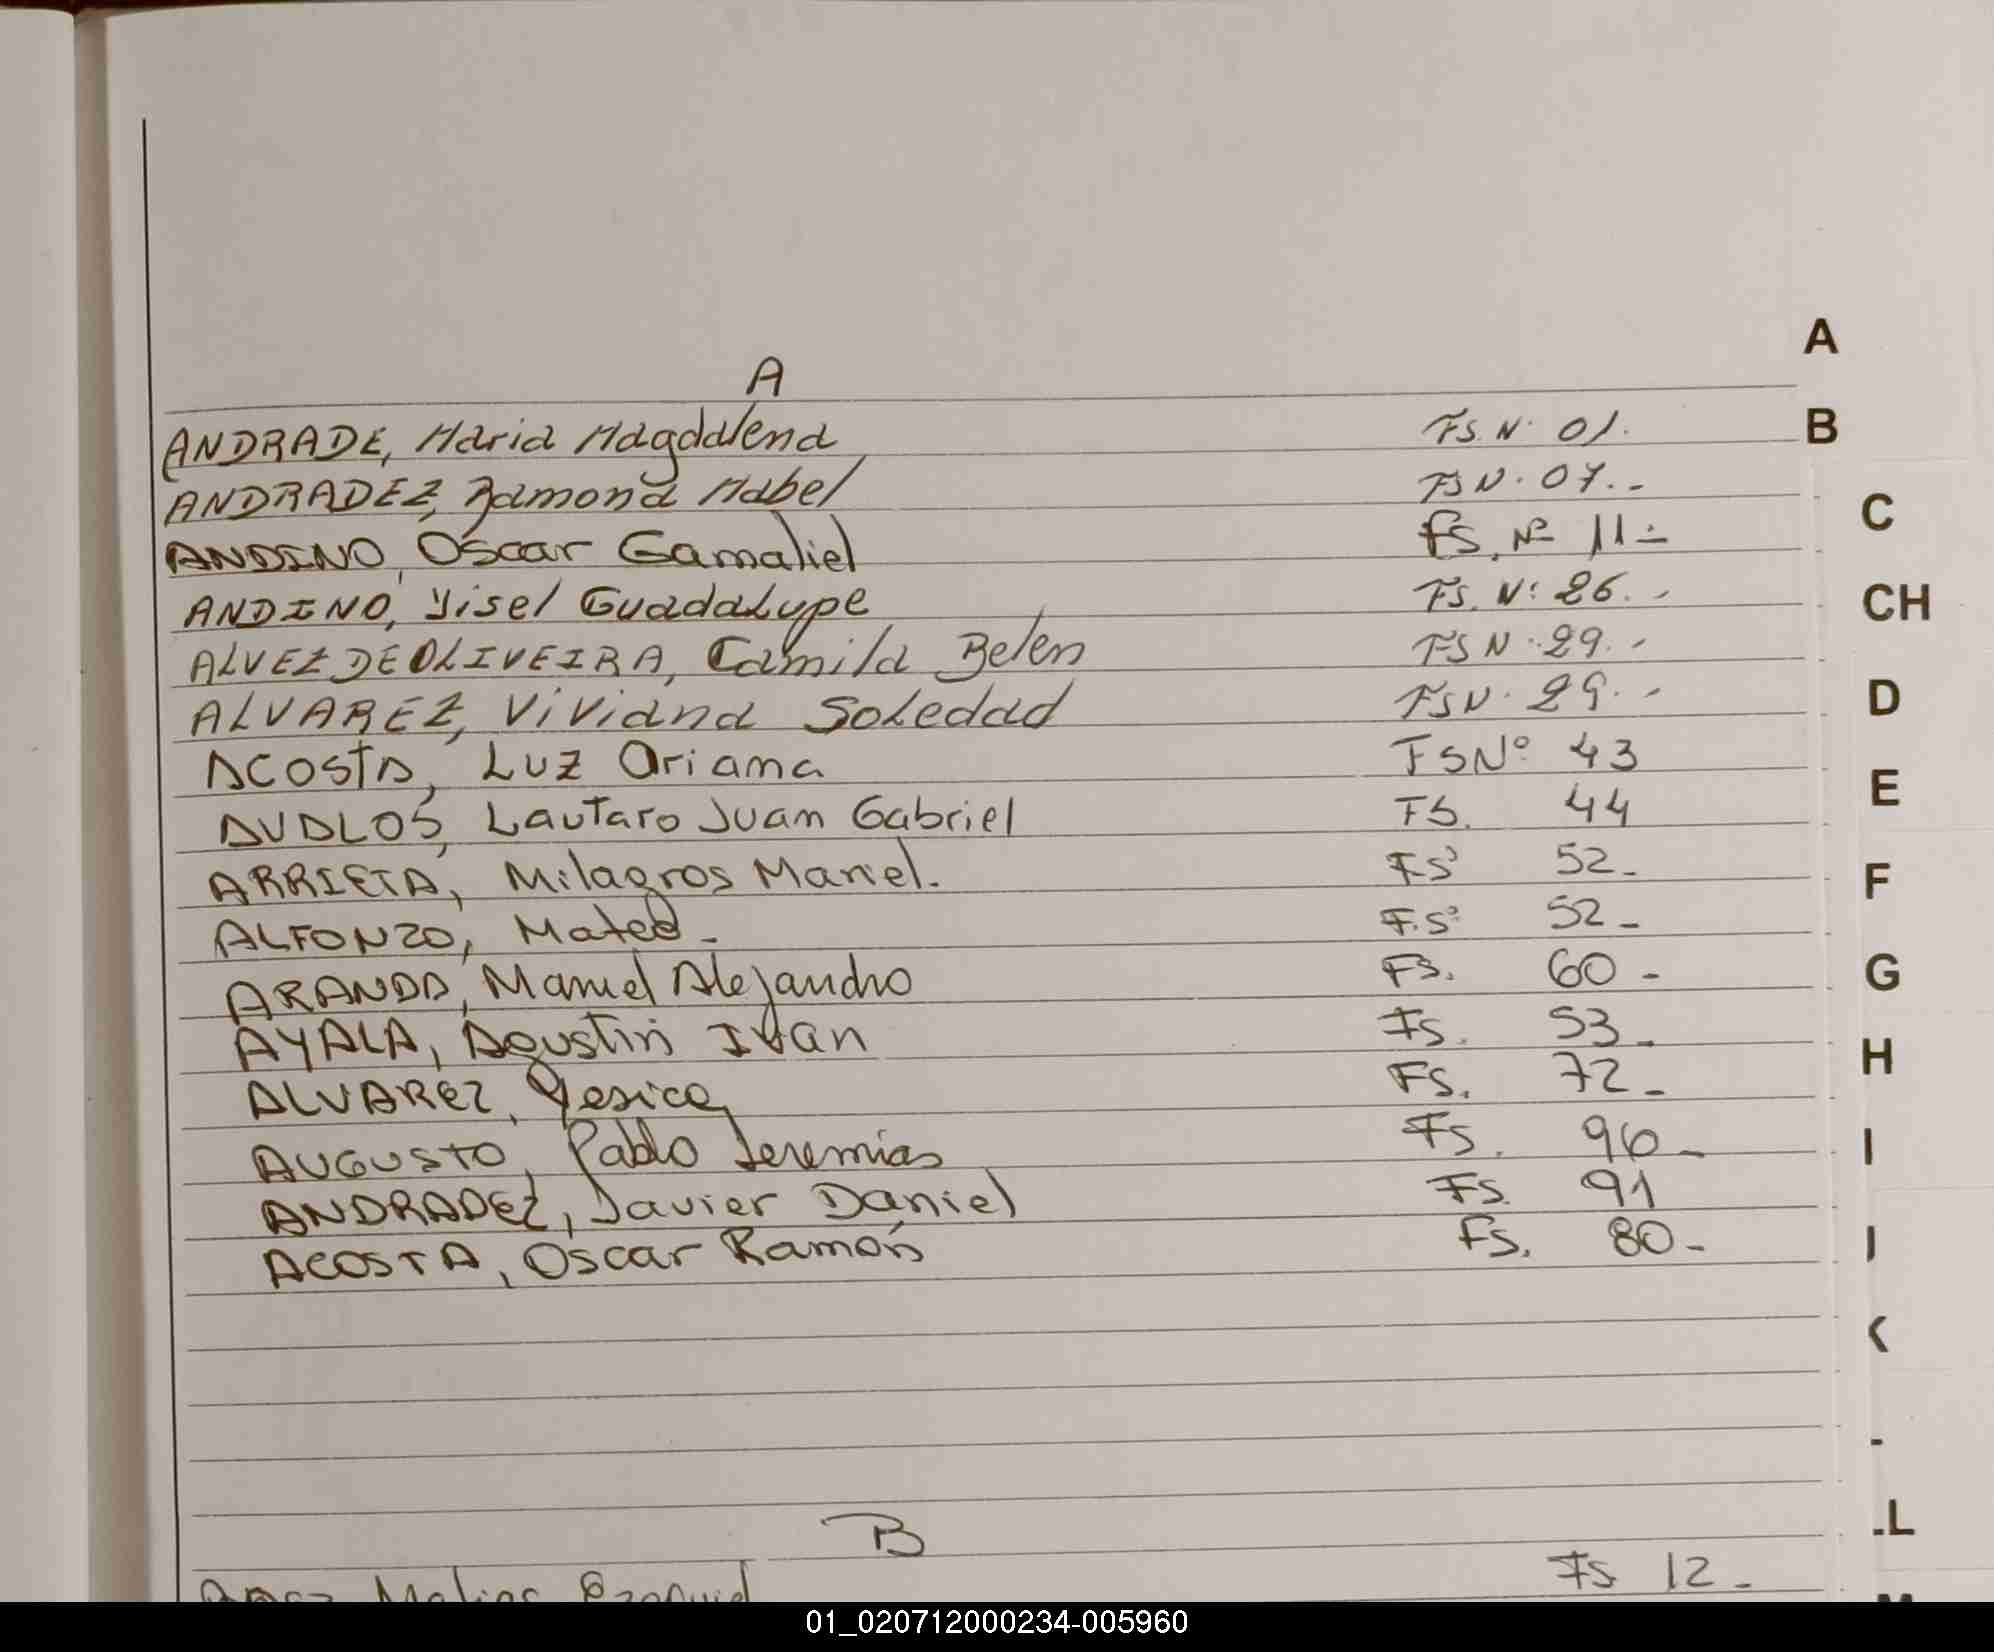 A
A
ANDRADE, Maria Magdalena FS. N· 01.
B
ANDRADEZ, Ramona Mabel FS N· 07.-
C
ANDINO, Oscar Gamaliel fs. Nº 11-
ANDINO, Yisel Guadalupe FS. N: 26.-
CH
ALVEZ DE OLIVEIRA, Camila Belen FS N· 29.-
ALVAREZ, Viviana Soledad FS N· 29.-
D
ACOSTA, Luz Oriana FS Nº 43
E
AVALOS, Lautaro Juan Gabriel FS. 44
ARRIETA, Milagros Mariel. FS 52-
F
ALFONZO, Mateo - F.S 52-
ARANDA, Manuel Alejandro FS. 60-
G
AYALA, Agustin Ivan Fs. 53-
H
ALVAREZ, Yesica FS. 72-
AUGUSTO, Pablo Jeremias Fs. 96-
I
ANDRADEZ, Javier Daniel FS. 91
ACOSTA, Oscar Ramón Fs. 80-
K
L
B
Matias Ezequiel Fs 12-
01_020712000234-005960